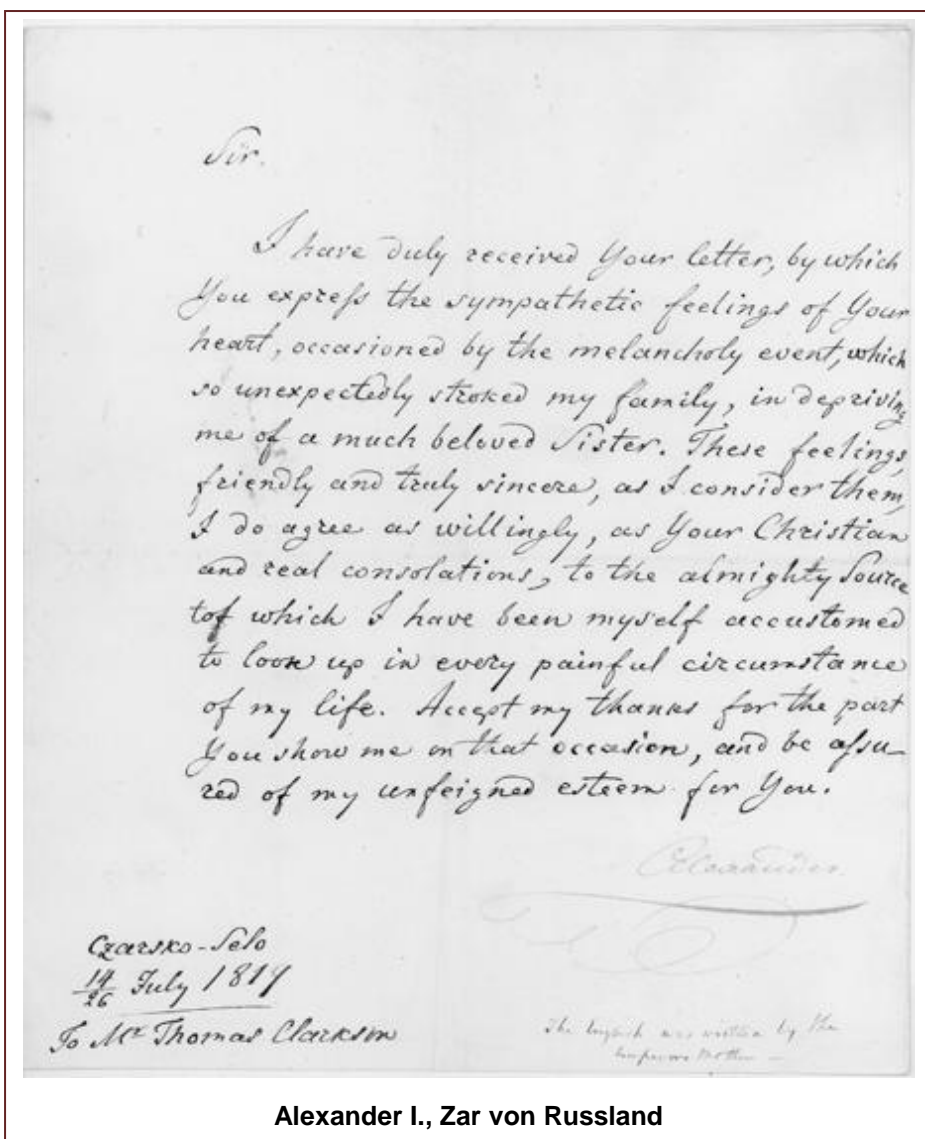 Sir.
I have duly received Your letter, by which
You express the sympathetic feelings of Your
heart, occasioned by the melancholy event, which
so unexpectedly stroked my family, in depriving
me of a much beloved Sister. These feelings,
friendly and truly sincere, as I consider them,
I do agree as willingly, as Your Christian
and real consolations, to the almighty Source
tof which I have been myself accustomed
to look up in every painful circumstance
of my life. Accept my thanks for the part
You show me on that occasion, and be assu-
red of my unfeigned esteem for You.
Alexander
Czarsko-Selo
14/26 July 1819
To Mr Thomas Clarkson
The English was written by the
Emperors Mother —
Alexander I., Zar von Russland